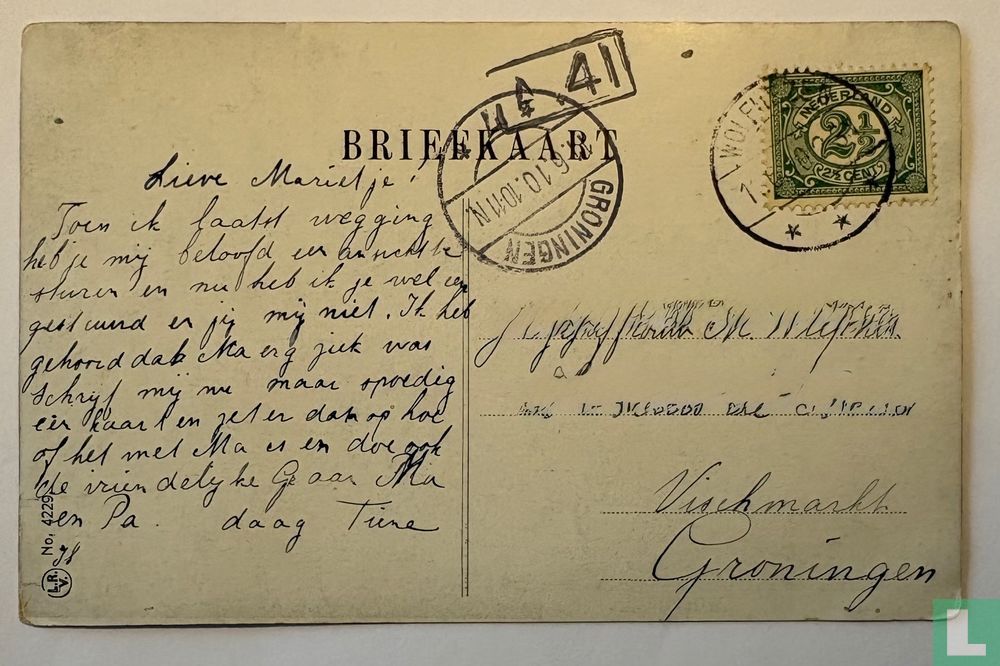 BRIEFKAART
Lieve Marietje!
Toen ik laatst wegging
heb je mij beloofd een ansicht te
sturen en nu heb ik je wel een
gestuurd en jij mij niet. Ik heb
gehoord dat Ma erg ziek was
schrijf mij nu maar spoedig
een kaart en zet er dan op hoe
of het met Ma is en doe ook
de vriendelijke Groeten aan Ma
en Pa. daag Tiene
No. 4229
L.R.
V.
41
GRONINGEN
6.10.10-11N
WOLF
NEDERLAND
2½
(2½ CENT)
M.
Vischmarkt
Groningen
L